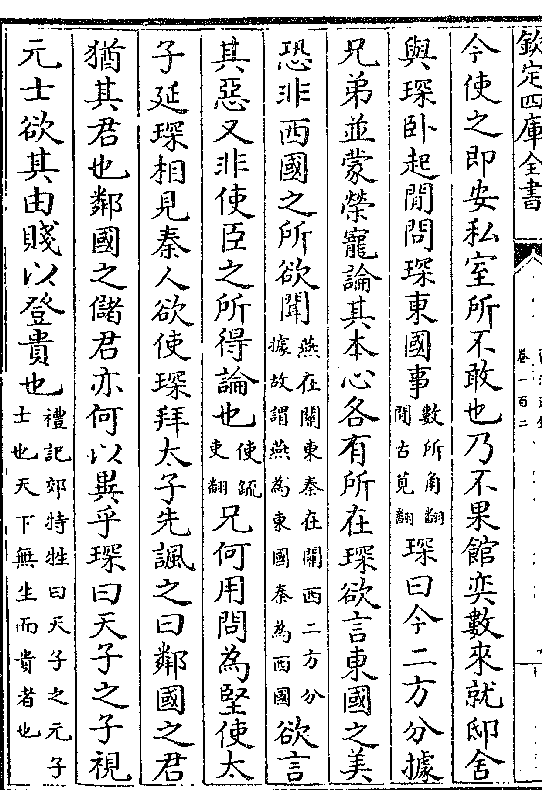 欽定四庫全書
卷一百二
今使之即安私室所不敢也乃不果館奕數來就邸舍
與琛卧起閒問琛東國事數所角翻閒古莧翻琛曰今二方分據
兄弟並蒙榮寵論其本心各有所在琛欲言東國之美
恐非西國之所欲聞燕在關東秦在關西二方分據故謂燕為東國秦為西國欲言
其惡又非使臣之所得論也使疏吏翻兄何用問為堅使太
子延琛相見秦人欲使琛拜太子先諷之曰鄰國之君
猶其君也鄰國之儲君亦何以異乎琛曰天子之子視
元士欲其由賤以登貴也禮記郊特牲曰天子之元子士也天下無生而貴者也